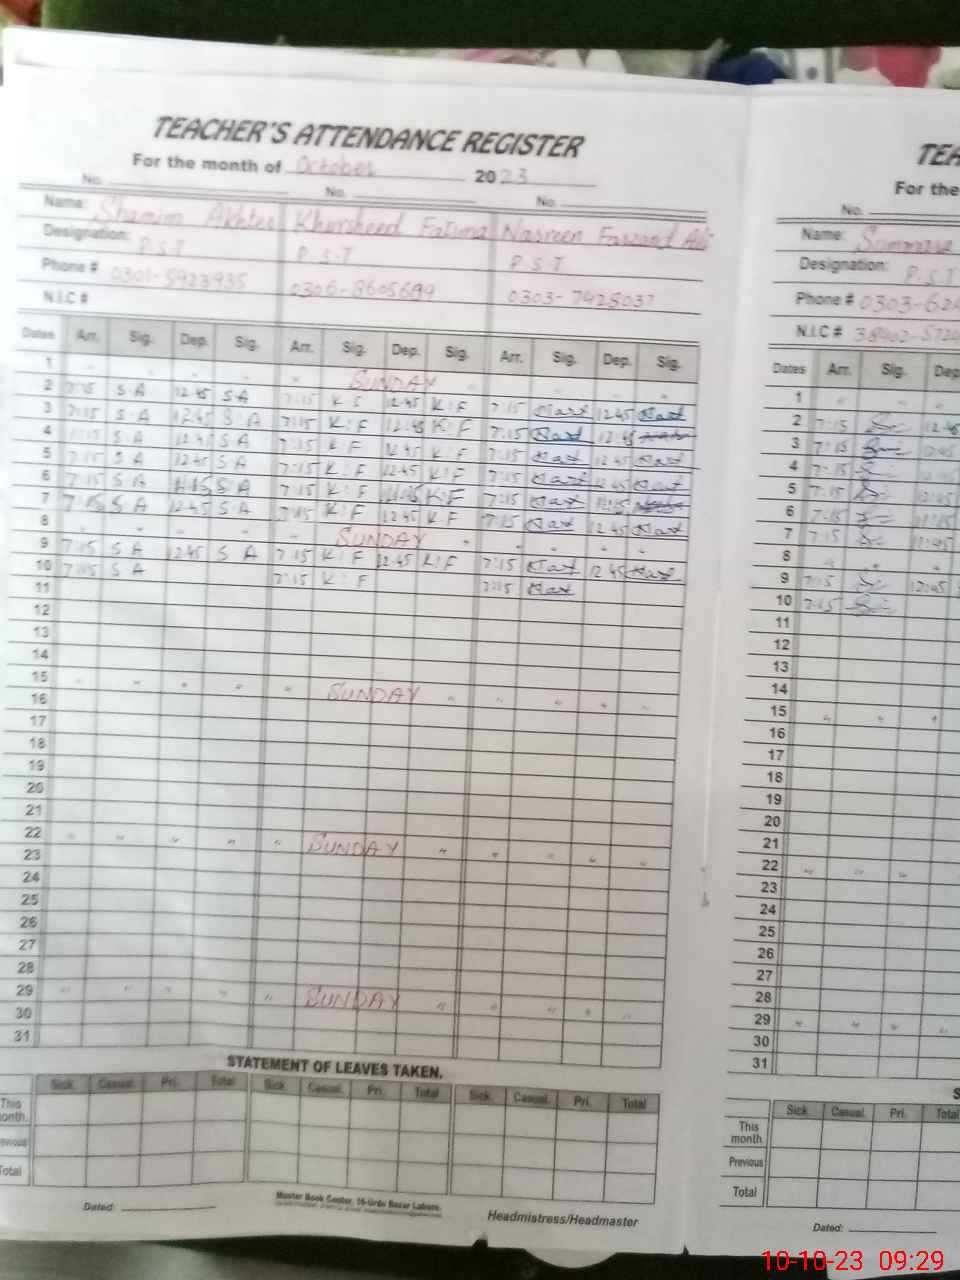 TEACHER'S ATTENDANCE REGISTER
For the month of October 2023
No. No. No.
Name: Shamim Akhter Khursheed Fatima Nasreen Farzand Ali
Designation: P.S.T P.S.T P.S.T
Phone # 0301-5923935 0306-8605699 0303-7428037
N.I.C #
Dates Arr. Sig. Dep. Sig. Arr. Sig. Dep. Sig. Arr. Sig. Dep. Sig.
1 SUNDAY
2 7:15 S.A 12.45 S.A 7:15 K F 12.45 K:F 7:15 12.45
3 7:15 S.A 12.45 S.A 7:15 K:F 12.45 K:F 7:15 12.45
4 7:15 S.A 12.45 S A 7:15 K F 12.45 K F 7:15 12.45
5 7:15 S A 12.45 S A 7:15 K:F 12.45 K:F 7:15 12.45
6 7:15 S A S A 7:15 K:F K:F 7:15
7 7:15 S A 12.45 S.A 7:15 K:F 12.45 K F 7:15 12.45
8 SUNDAY
9 7:15 S A 12.45 S A 7:15 K:F 12.45 K:F 7:15 12.45
10 7:15 S A 7:15 K:F 7:15
11
12
13
14
15 SUNDAY
16
17
18
19
20
21
22 SUNDAY
23
24
25
26
27
28
29 SUNDAY
30
31
STATEMENT OF LEAVES TAKEN.
Sick Casual. Pri. Total Sick Casual. Pri. Total Sick. Casual. Pri. Total
This
onth.
evious
Total
Dated:
Master Book Center, 38-Urdu Bazar Lahore.
Headmistress/Headmaster
TEA
For the
No.
Name:
Designation: P.S.T
Phone # 0303-62
N.I.C # 38402-
Dates Arr. Sig. Dep
1
2 7:15 12.45
3 7:15 12:45
4 7:15
5 7:15 12:45
6 7:15
7 7:15 12:45
8
9 7:15 12:45
10 7:15
11
12
13
14
15
16
17
18
19
20
21
22
23
24
25
26
27
28
29
30
31
S
Sick Casual. Pri. Total
This
month.
Previous
Total
Dated:
10-10-23 09:29